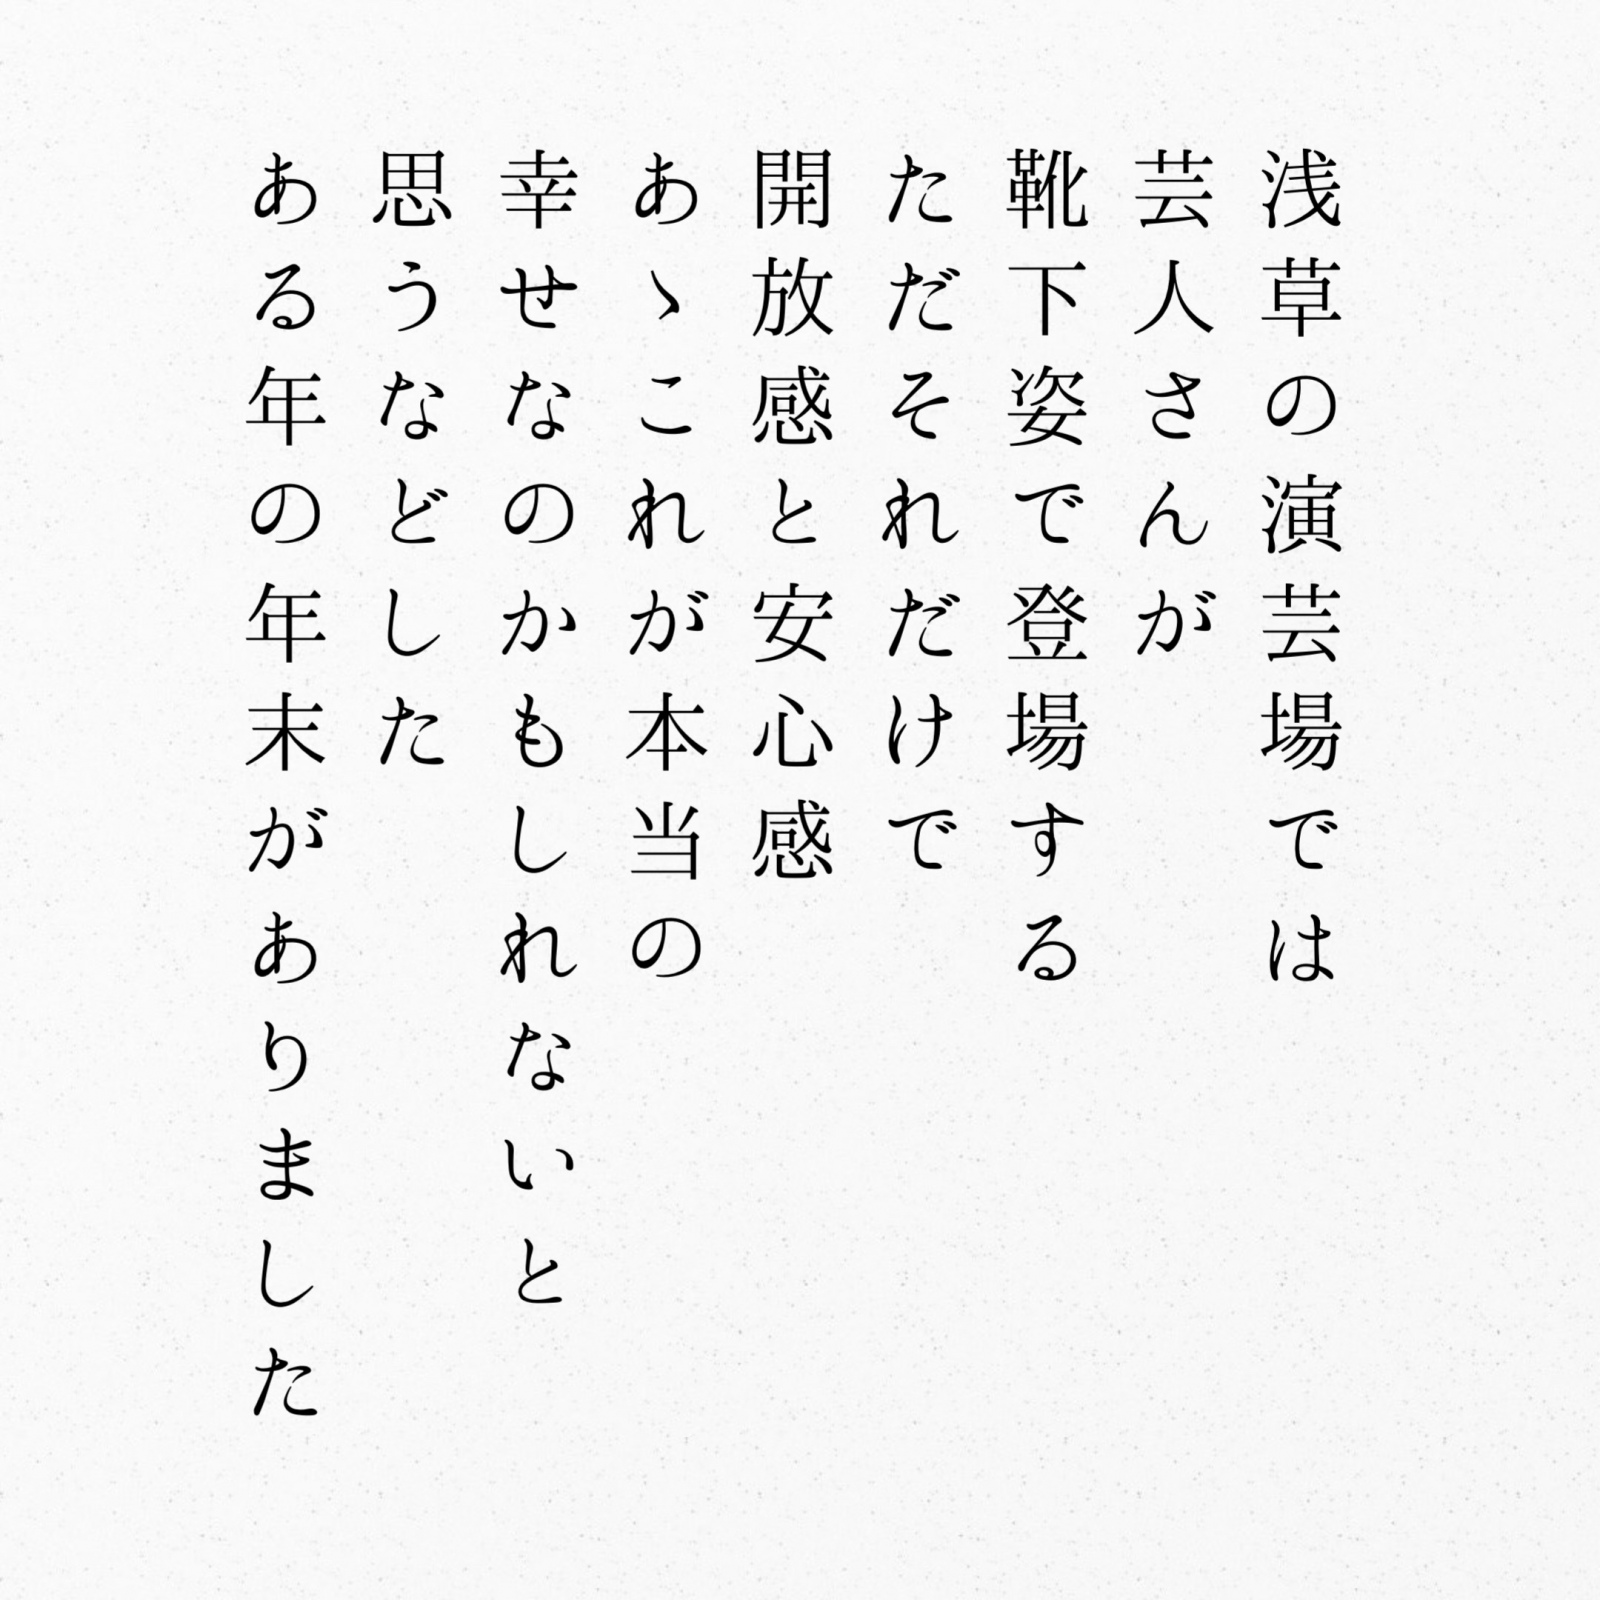 浅草の演芸場では
芸人さんが
靴下姿で登場する
ただそれだけで
開放感と安心感
あゝこれが本当の
幸せなのかもしれないと
思うなどした
ある年の年末がありました